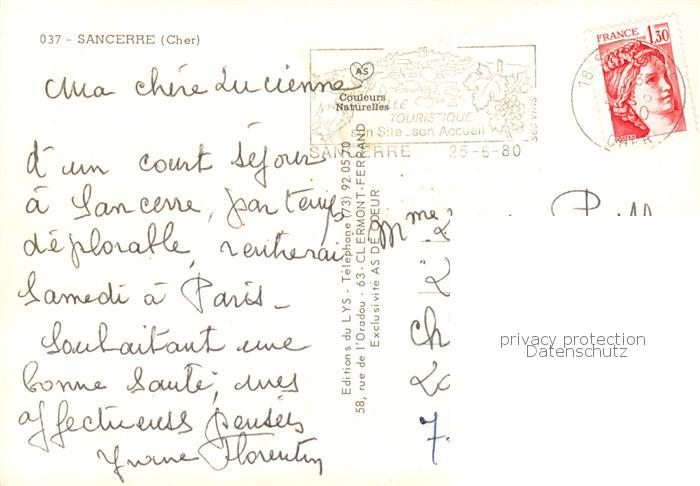 037 - SANCERRE (Cher)
Ma chère Lucienne
d'un court séjour
à Sancerre, par temps
déplorable, rentrerai
Samedi à Paris -
Souhaitant une
bonne santé, mes
affectueuses pensées
Yvonne Florentin
AS
Couleurs
Naturelles
LE
TOURISTIQUE
Son Site - son Accueil
ses vins
SANCERRE 25-6-80
FRANCE 1,30
18
CHER
Editions du LYS - Téléphone (73) 92 05 70
58, rue de l'Oradou - 63 - CLERMONT-FERRAND
Exclusivité AS DE CŒUR
Mme
privacy protection
Datenschutz